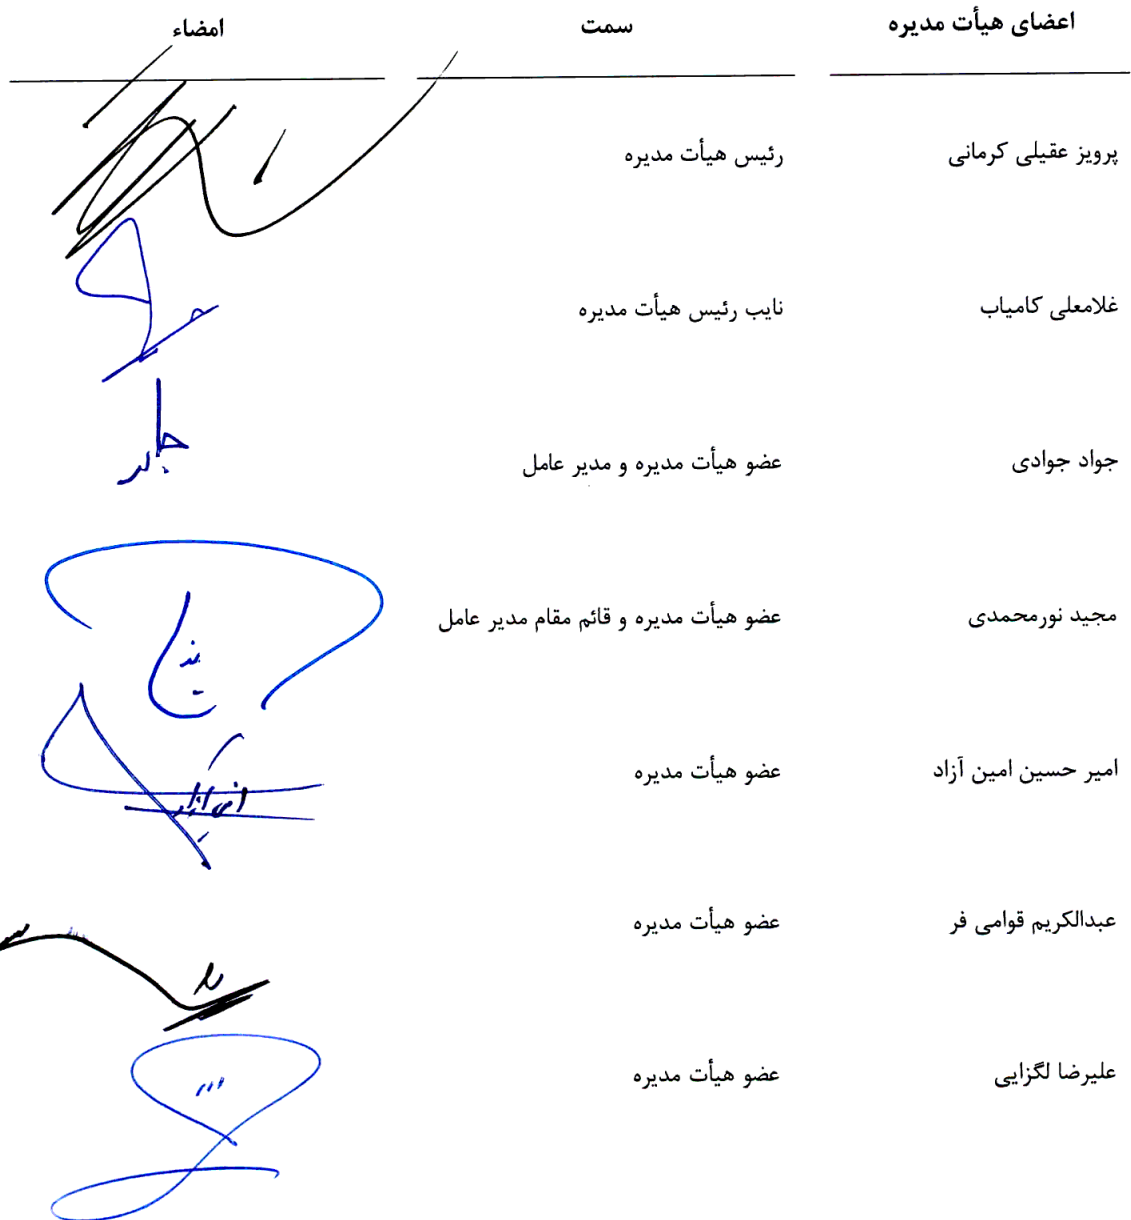 اعضای هیأت مدیره سمت امضاء
پرویز عقیلی کرمانی رئیس هیأت مدیره
غلامعلی کامیاب نایب رئیس هیأت مدیره
جواد جوادی عضو هیأت مدیره و مدیر عامل
مجید نورمحمدی عضو هیأت مدیره و قائم مقام مدیر عامل
امیر حسین امین آزاد عضو هیأت مدیره
عبدالکریم قوامی فر عضو هیأت مدیره
علیرضا لگزایی عضو هیأت مدیره